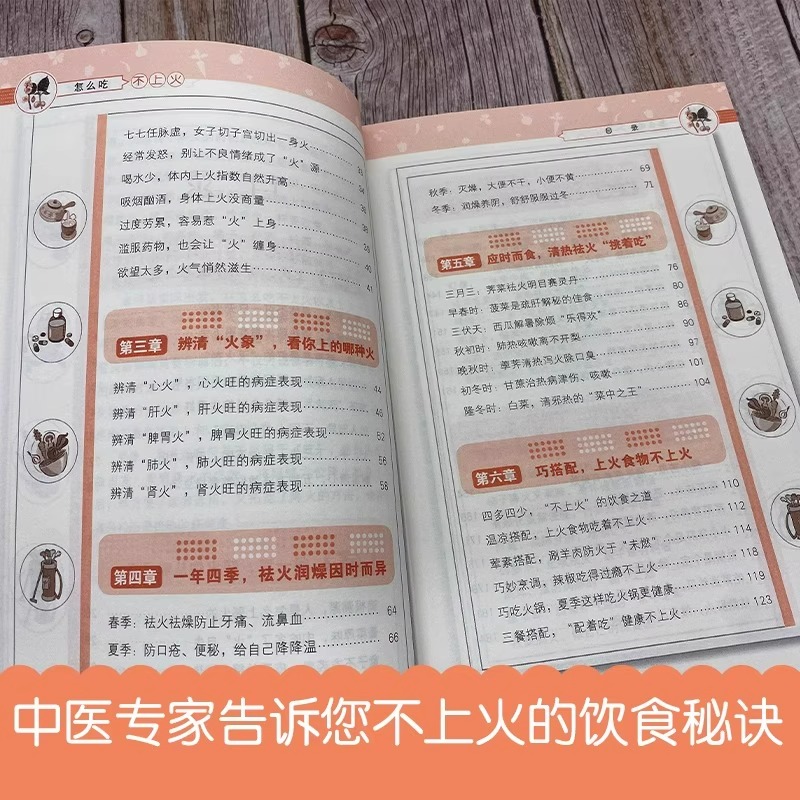 怎么吃 不上火
七七任脉虚，女子切子宫切出一身火
经常发怒，别让不良情绪成了“火”源
喝水少，体内上火指数自然升高
吸烟酗酒，身体上火没商量 36
过度劳累，容易惹“火”上身 38
滥服药物，也会让“火”缠身 39
欲望太多，火气悄然滋生 40
41
第三章 辨清“火象”，看你上的哪种火
辨清“心火”，心火旺的病症表现 44
辨清“肝火”，肝火旺的病症表现 46
辨清“脾胃火”，脾胃火旺的病症表现 52
辨清“肺火”，肺火旺的病症表现 56
辨清“肾火”，肾火旺的病症表现 58
第四章 一年四季，祛火润燥因时而异
春季：祛火祛燥防止牙痛、流鼻血 64
夏季：防口疮、便秘，给自己降降温 66
目录
秋季：灭燥，大便不干，小便不黄 69
冬季：润燥养阴，舒舒服服过冬 71
第五章 应时而食，清热祛火“挑着吃”
三月三：荠菜祛火明目赛灵丹 76
早春时：菠菜是疏肝解秘的佳食 80
三伏天：西瓜解暑除烦“乐得欢” 86
秋初时：肺热咳嗽离不开梨 90
晚秋时：荸荠清热泻火除口臭 97
初冬时：甘蔗治热病津伤、咳嗽 101
隆冬时：白菜，清邪热的“菜中之王” 104
第六章 巧搭配，上火食物不上火
四多四少，“不上火”的饮食之道 110
温凉搭配，上火食物吃着不上火 112
荤素搭配，涮羊肉防火于“未燃” 114
巧妙烹调，辣椒吃得过瘾不上火 118
巧吃火锅，夏季这样吃火锅更健康 119
三餐搭配，“配着吃”健康不上火 123
中医专家告诉您不上火的饮食秘诀